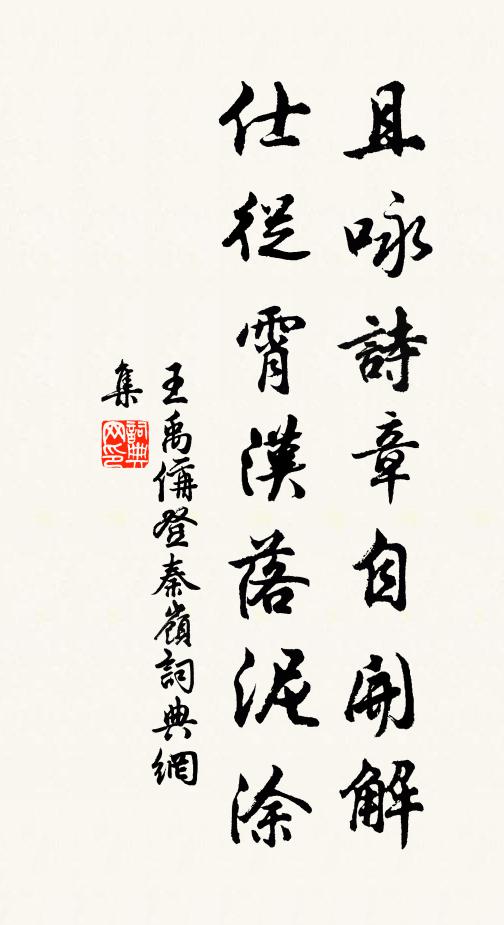 且咏詩章自開解
仕從霄漢落泥涂
王禹偁登秦嶺詞典網
集
詞典
网印